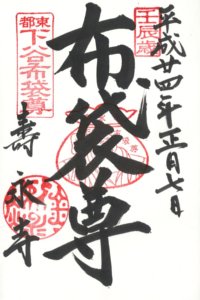 壬辰歳
平成廿四年正月七日
布袋尊
東都
下谷布袋尊
壽永寺